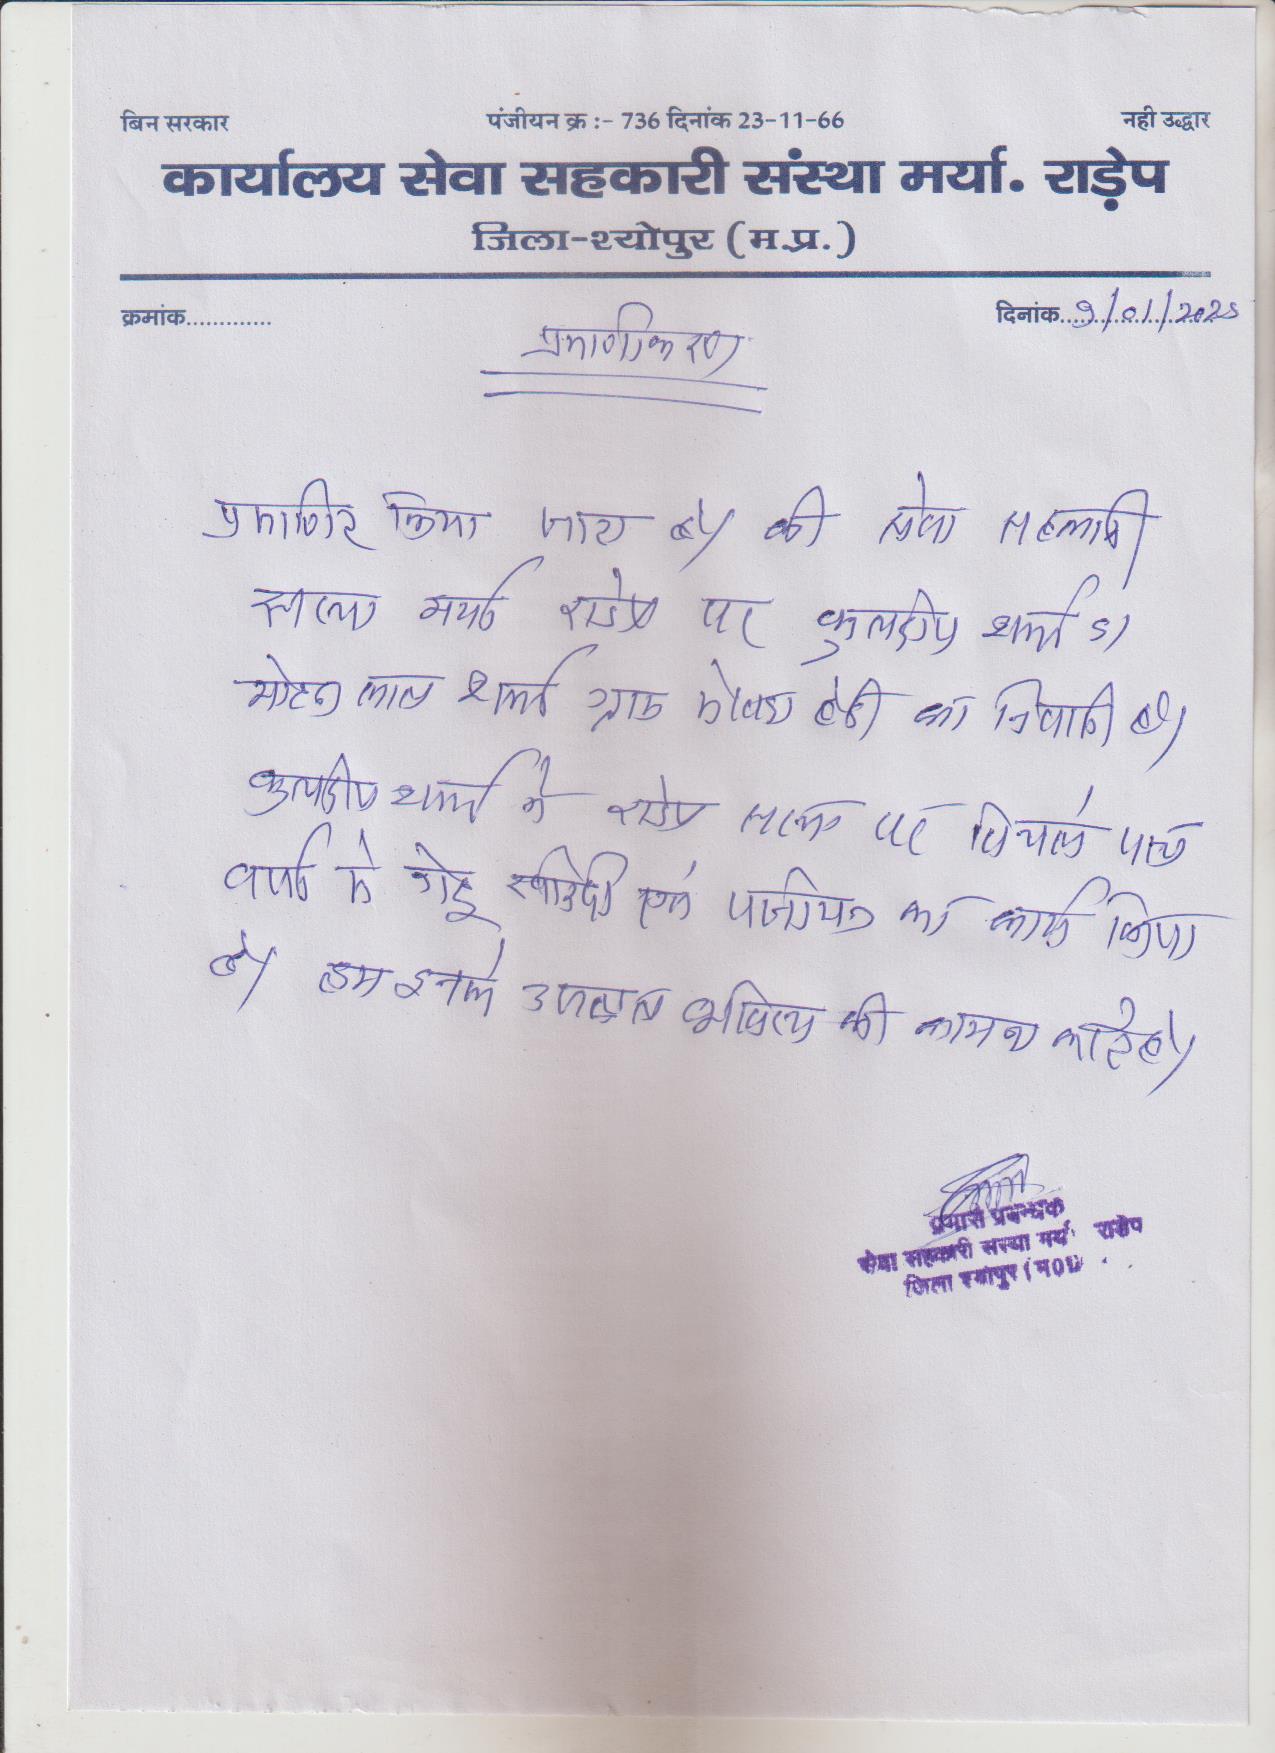 बिन सरकार पंजीयन क्र :- 736 दिनांक 23-11-66 नही उद्धार
कार्यालय सेवा सहकारी संस्था मर्या. राड़ेप
जिला-श्योपुर (म.प्र.)
क्रमांक............. दिनांक 9/01/2025
प्रमाणीकरण
प्रमाणित किया जाता है की सेवा सहकारी
संस्था मर्या राडेप पर कुलदीप शर्मा S/
मोहन लाल शर्मा ग्राम का निवासी है
कुलदीप शर्मा ने राडेप संस्था पर पिछले पाच
वर्षो से गेहू खरीदी एवं पंजीयन का कार्य किया
है हम इनके उज्जवल भविष्य की कामना करते है
प्रभारी प्रबन्धक
सेवा सहकारी संस्था मर्या राडेप
जिला श्योपुर (म0प्र